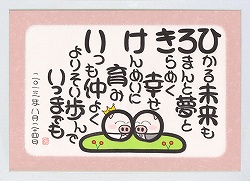 ひかる未来も
ろまんと夢と
きらめく
幸せ
けんめいに
育み
いつも仲よく
よりそい歩んで
いつまでも
二〇一三年八月二四日